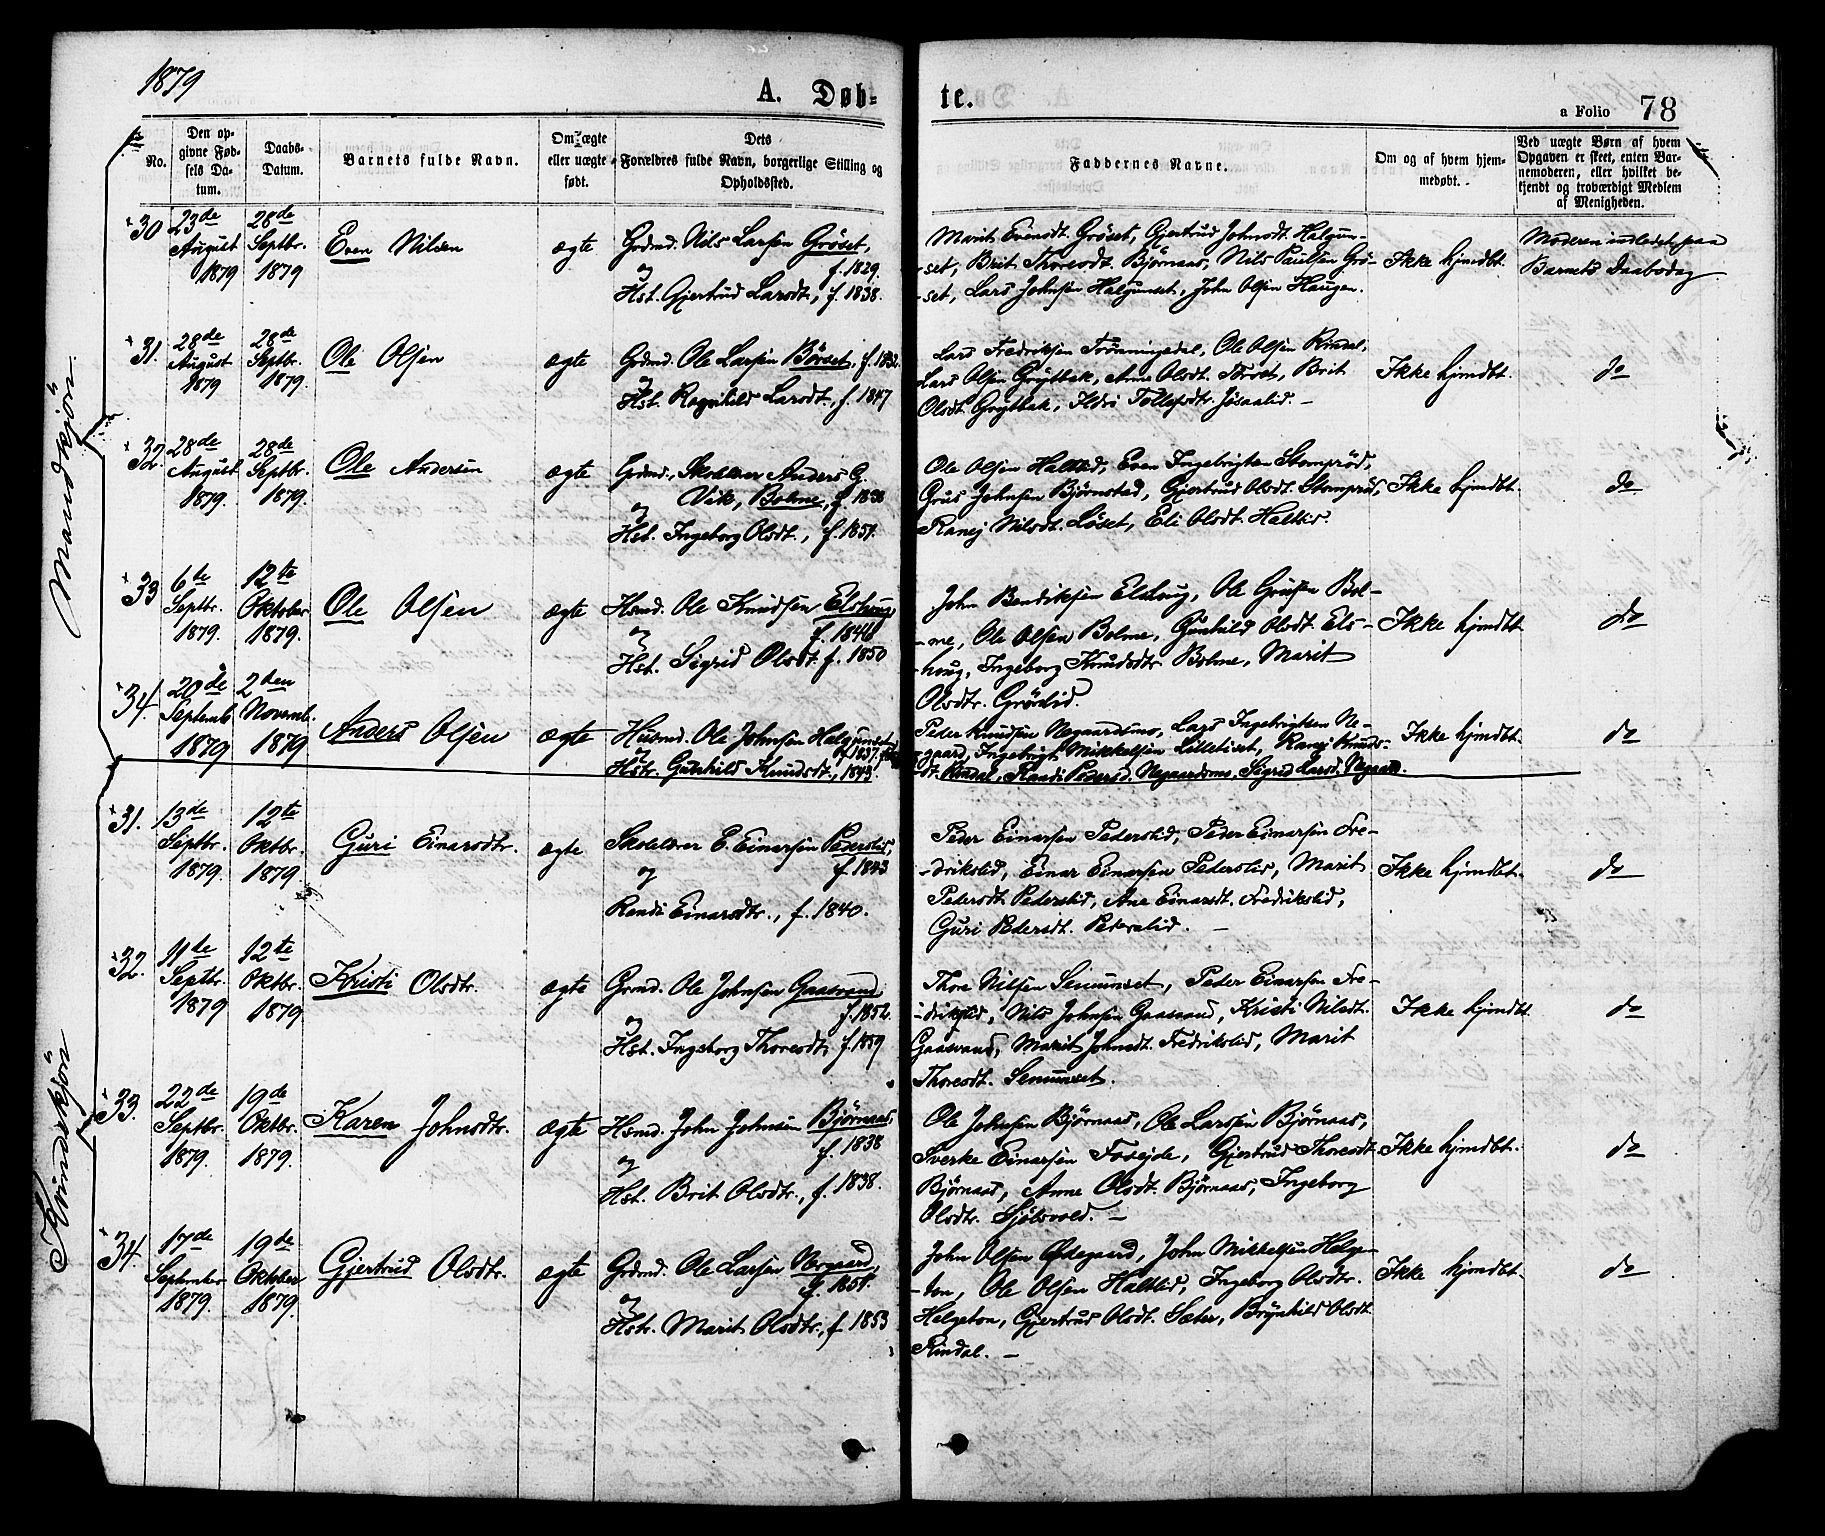 1879
A. Døb-
te.
a Folio 78
No.
Den op-
givne Fød-
sels Da-
tum.
Daabs-
Datum.
Barnets fulde Navn.
Om ægte
eller uægte
født.
Dets
Forældres fulde Navn, borgerlige Stilling og
Opholdssted.
Faddernes Navne.
Om og af hvem hjem-
medøbt.
Ved uægte Børn af hvem
Opgaven er skeet, enten Bar-
nemoderen, eller hvilket be-
kjendt og troværdigt Medlem
af Menigheden.
Mandkjön
30
23de
August
1879
28de
Septbr.
1879
Even Nilsen
ægte
Grdmd. Nils Larsen Gröset,
f. 1829.
og
Hst. Gjertrud Larsdt., f. 1838.
Marit Evensdt. Gröset, Gjertrud Johnsdt. Halgun-
-set, Brit Thoresdt. Björnaas, Nils Paulsen Grö-
-set, Lars Johnsen Halgunset, John Olsen Haugen.
Ikke hjmdbt.
Moderen indledet paa
Barnets Daabsdag
31.
28de
August
1879
28de
Septbr.
1879.
Ole Olsen
ægte
Grdmd. Ole Larsen Börset, f. 1832.
og
Hst. Ragnhild Larsdt., f. 1847
Lars Fredriksen Trönningsdal, Ole Olsen Rindal,
Lars Olsen Grytbak, Anne Olsdt. Törset, Brit
Olsdt. Grytbak, Ildri Tollefsdtr. Jösaalid. -
Ikke hjmdbt.
do
32.
28de
August
1879.
28de
Septbr.
1879.
Ole Andersen
ægte
Grdmd., Skolelærer Anders G.
Vik, Bolme, f. 1838
og
Hst. Ingeborg Olsdt., f. 1851.
Ole Olsen Haltlid, Even Ingebrigtsen Stomprød,
Grus Johnsen Björnstad, Gjertrud Olsdt. Stomprød,
Ranej Nilsdt. Löset, Eli Olsdt. Haltlid.
Ikke hjmdbt.
do
33
6te
Septbr.
1879.
12te
Oktober
1879.
Ole Olsen
ægte
Hsmd. Ole Knudsen Elshoug,
f. 1846
og
Hst. Sigrid Olsdt. f. 1850
John Bendiksen Elshoug, Ole Grusen Bol-
-me, Ole Olsen Bolme, Gunhild Olsdt. Els-
-houg, Ingeborg Knudsdtr. Bolme, Marit
Olsdtr. Grönlid.
Ikke hjmdbt
do
34.
20de
Septemb.
1879
2den
Novemb.
1879
Anders Olsen
ægte
Husmd. Ole Johnsen Halgunset
f. 1837.
og
Hstr. Gunhild Knudsdt., 1843.
Peder Knudsen Negaardsmo, Lars Ingebrigtsen Ne-
gaard, Ingebrigt Mikkelsen Lilletiset, Ranej Knuds-
dt. Rindal, Randi Pedersd. Negaardsmo, Sigrid Larsd. Negaard.
Ikke hjmdbt.
do
Kvindekjön
31.
13de
Septbr.
1879.
12te
Oktbr.
1879.
Guri Einarsdtr.
ægte
Skolelærer E. Einarsen Pederslid,
f. 1843
og
Randi Einarsdtr., f. 1840.
Peder Einarsen Pederslid, Peder Einarsen Fre-
-drikslid, Einar Einarsen Pederslid, Marit
Pedersdt. Pederslid, Ane Einarsdt. Fredrikslid,
Guri Pedersdt. Pederslid. -
Ikke hjmdbt.
do
32.
11te
Septbr.
1879
12te
Oktbr.
1879
Kristi Olsdtr.
ægte
Grmd. Ole Johnsen Gaasvand
f. 1852.
og
Hst. Ingeborg Thoresdt. f. 1859
Thore Nilsen Semunset, Peder Einarsen Fre-
-drikslid, Nils Johnsen Gaasvand, Kristi Nilsdt.
Gaasvand, Marit Johnsdt. Fredrikslid, Marit
Thoresdt. Semunset.
Ikke hjmdbt.
do
33.
22de
Septbr.
1879.
19de
Oktbr.
1879.
Karen Johnsdtr.
ægte
Hsmd. John Johnsen Björnaas,
f. 1838
og
Hst. Brit Olsdtr., f. 1838.
Ole Johnsen Björnaas, Ole Larssen Björnaas,
Sverke Einarsen Fosejde, Gjertrud Thoresdt.
Björnaas, Anne Olsdt. Björnaas, Ingeborg
Olsdtr. Sjölsvold. -
Ikke hjmdbt.
do
34.
17de
September
1879.
19de
Oktober
1879.
Gjertrud Olsdtr.
ægte
Grdmd. Ole Larsen Nergaard,
f. 1851.
og
Hstr. Marit Olsdtr., f. 1853
John Olsen Ødegaard, John Mikkelsen Helge-
-ton, Ole Olsen Haltlid, Ingeborg Olsdtr.
Helgeton, Gjertrud Olsdt. Sæter, Brynhild Olsdt.
Rindal. -
Ikke hjmdbt.
do